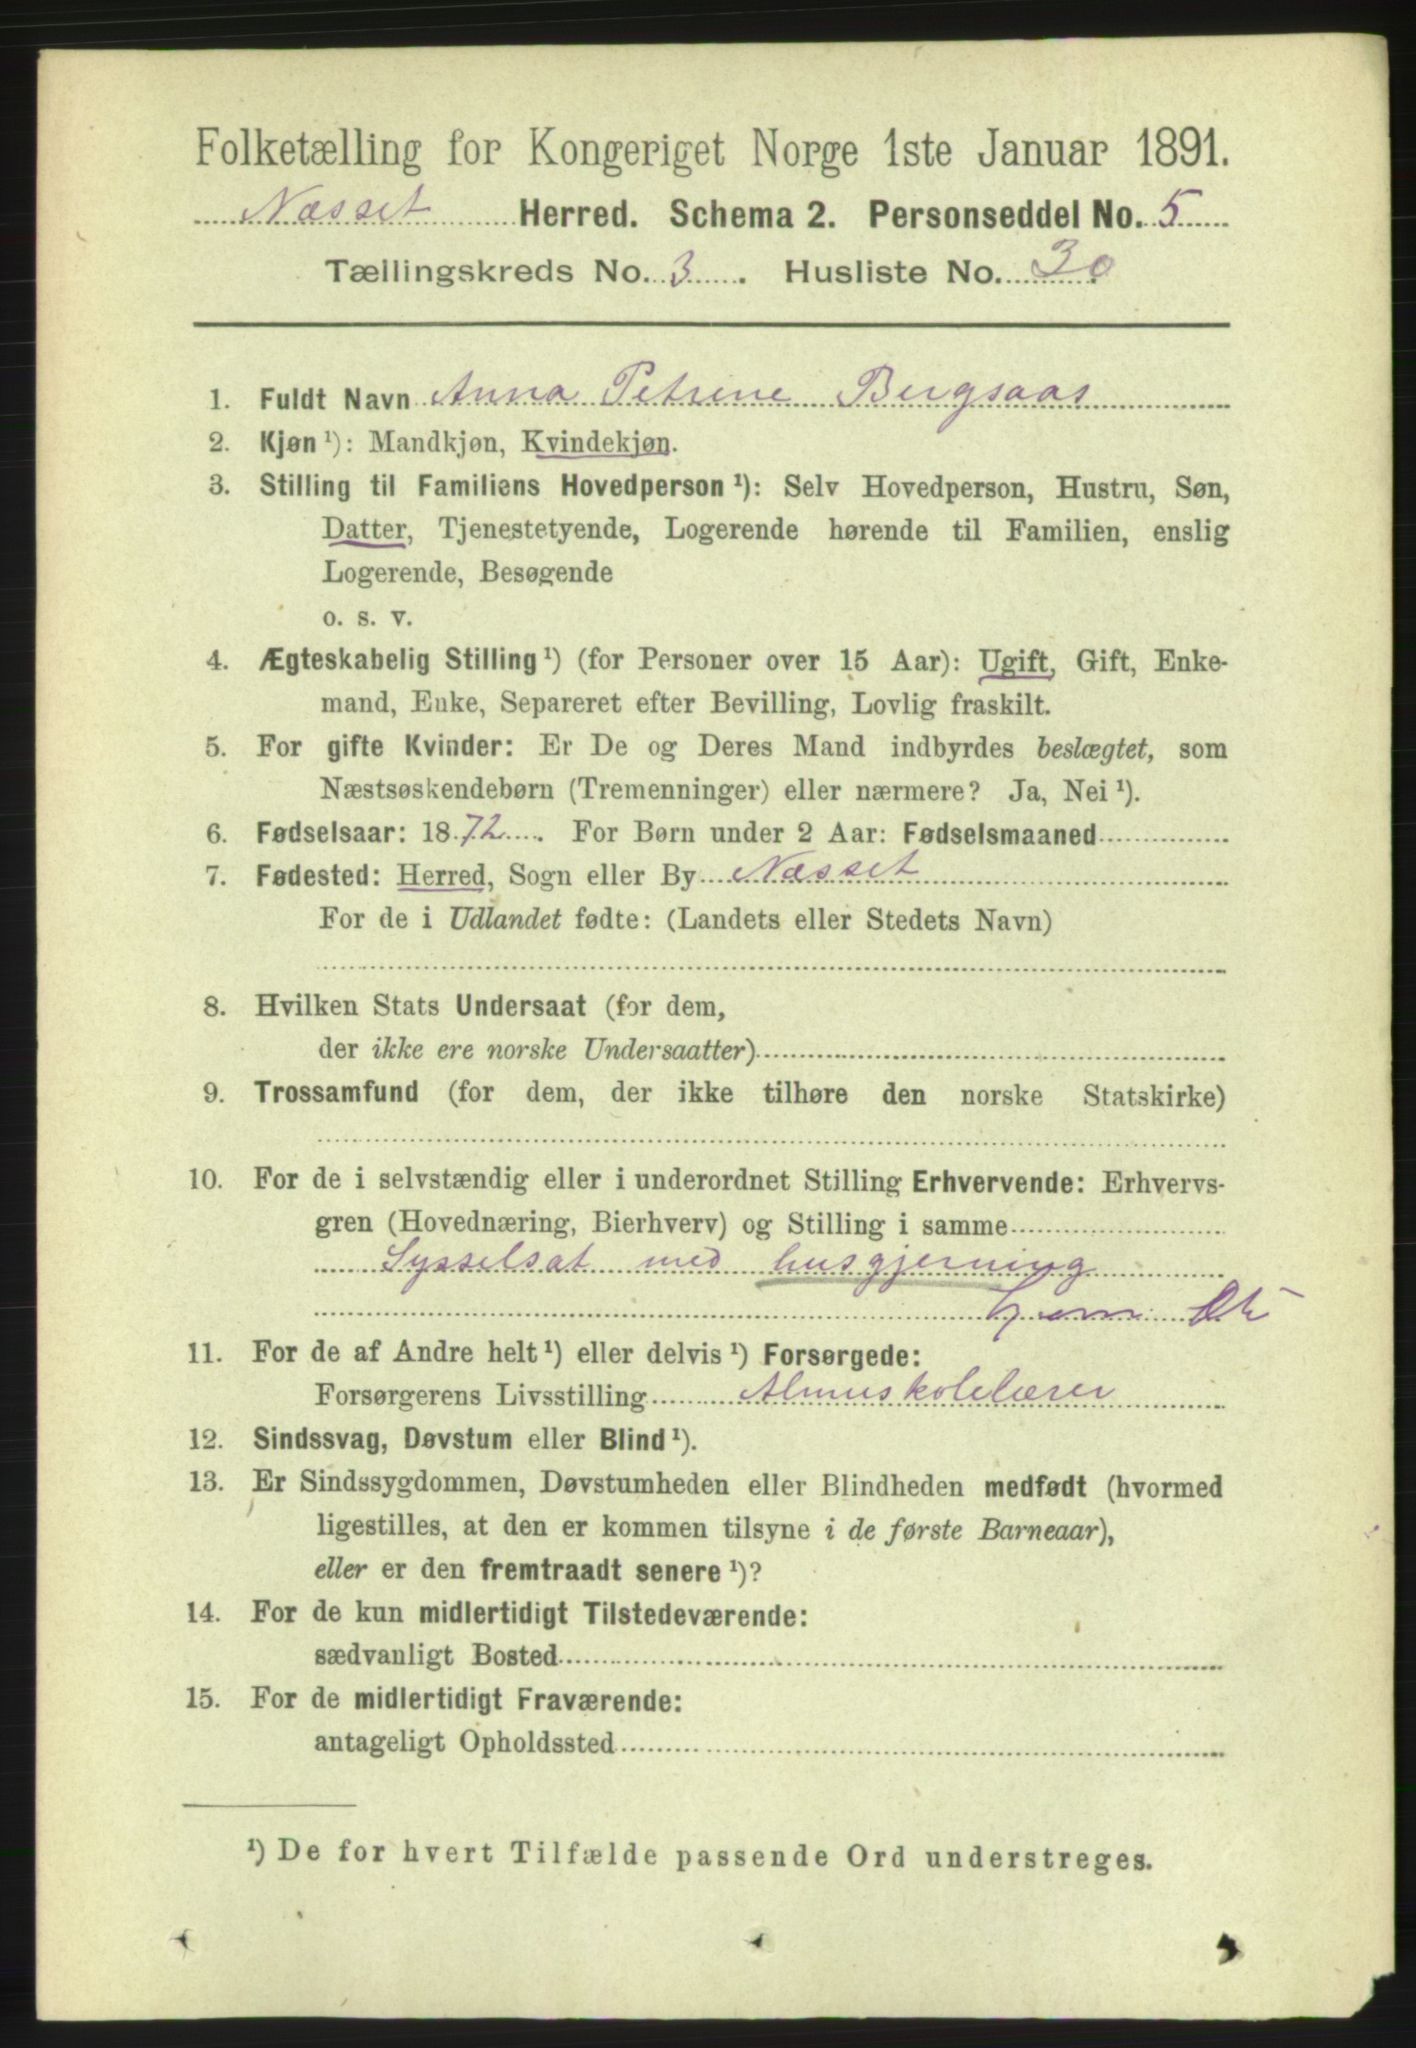 Folketælling for Kongeriget Norge 1ste Januar 1891.
Næsset Herred. Schema 2. Personseddel No. 5
Tællingskreds No. 3. Husliste No. 30
1. Fuldt Navn Anna Petrine Bergsaas
2. Kjøn ¹): Mandkjøn, Kvindekjøn.
3. Stilling til Familiens Hovedperson ¹): Selv Hovedperson, Hustru, Søn,
Datter, Tjenestetyende, Logerende hørende til Familien, enslig
Logerende, Besøgende
o. s. v.
4. Ægteskabelig Stilling ¹) (for Personer over 15 Aar): Ugift, Gift, Enke-
mand, Enke, Separeret efter Bevilling, Lovlig fraskilt.
5. For gifte Kvinder: Er De og Deres Mand indbyrdes beslægtet, som
Næstsøskendebørn (Tremenninger) eller nærmere? Ja, Nei ¹).
6. Fødselsaar: 1872. For Børn under 2 Aar: Fødselsmaaned
7. Fødested: Herred, Sogn eller By Næsset
For de i Udlandet fødte: (Landets eller Stedets Navn)
8. Hvilken Stats Undersaat (for dem,
der ikke ere norske Undersaatter)
9. Trossamfund (for dem, der ikke tilhøre den norske Statskirke)
10. For de i selvstændig eller i underordnet Stilling Erhvervende: Erhvervs-
gren (Hovednæring, Bierhverv) og Stilling i samme
Sysselsat med husgjerning
11. For de af Andre helt ¹) eller delvis ¹) Forsørgede:
Forsørgerens Livsstilling Almuskolelærer
12. Sindssvag, Døvstum eller Blind ¹).
13. Er Sindssygdommen, Døvstumheden eller Blindheden medfødt (hvormed
ligestilles, at den er kommen tilsyne i de første Barneaar),
eller er den fremtraadt senere ¹)?
14. For de kun midlertidigt Tilstedeværende:
sædvanligt Bosted
15. For de midlertidigt Fraværende:
antageligt Opholdssted
¹) De for hvert Tilfælde passende Ord understreges.